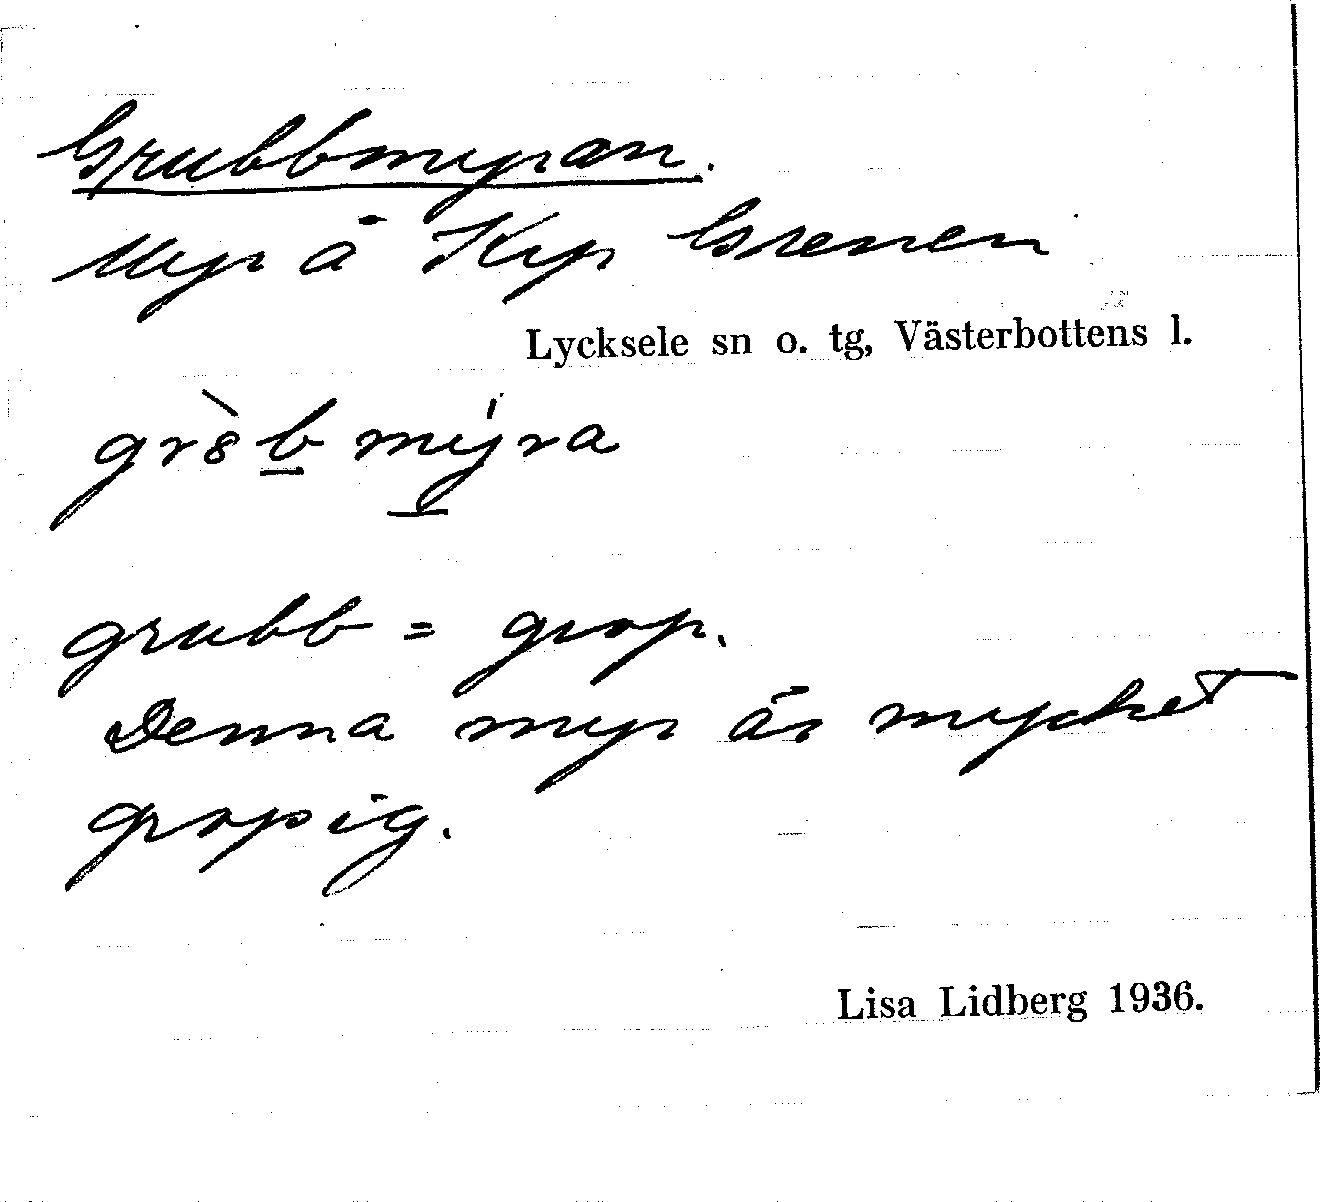 Grubbmyran.
Myr å Krp Grenen
Lycksele sn o. tg, Västerbottens l.
gr8̀b mýra
grubb = grop.
Denna myr är mycket
gropig.
Lisa Lidberg 1936.